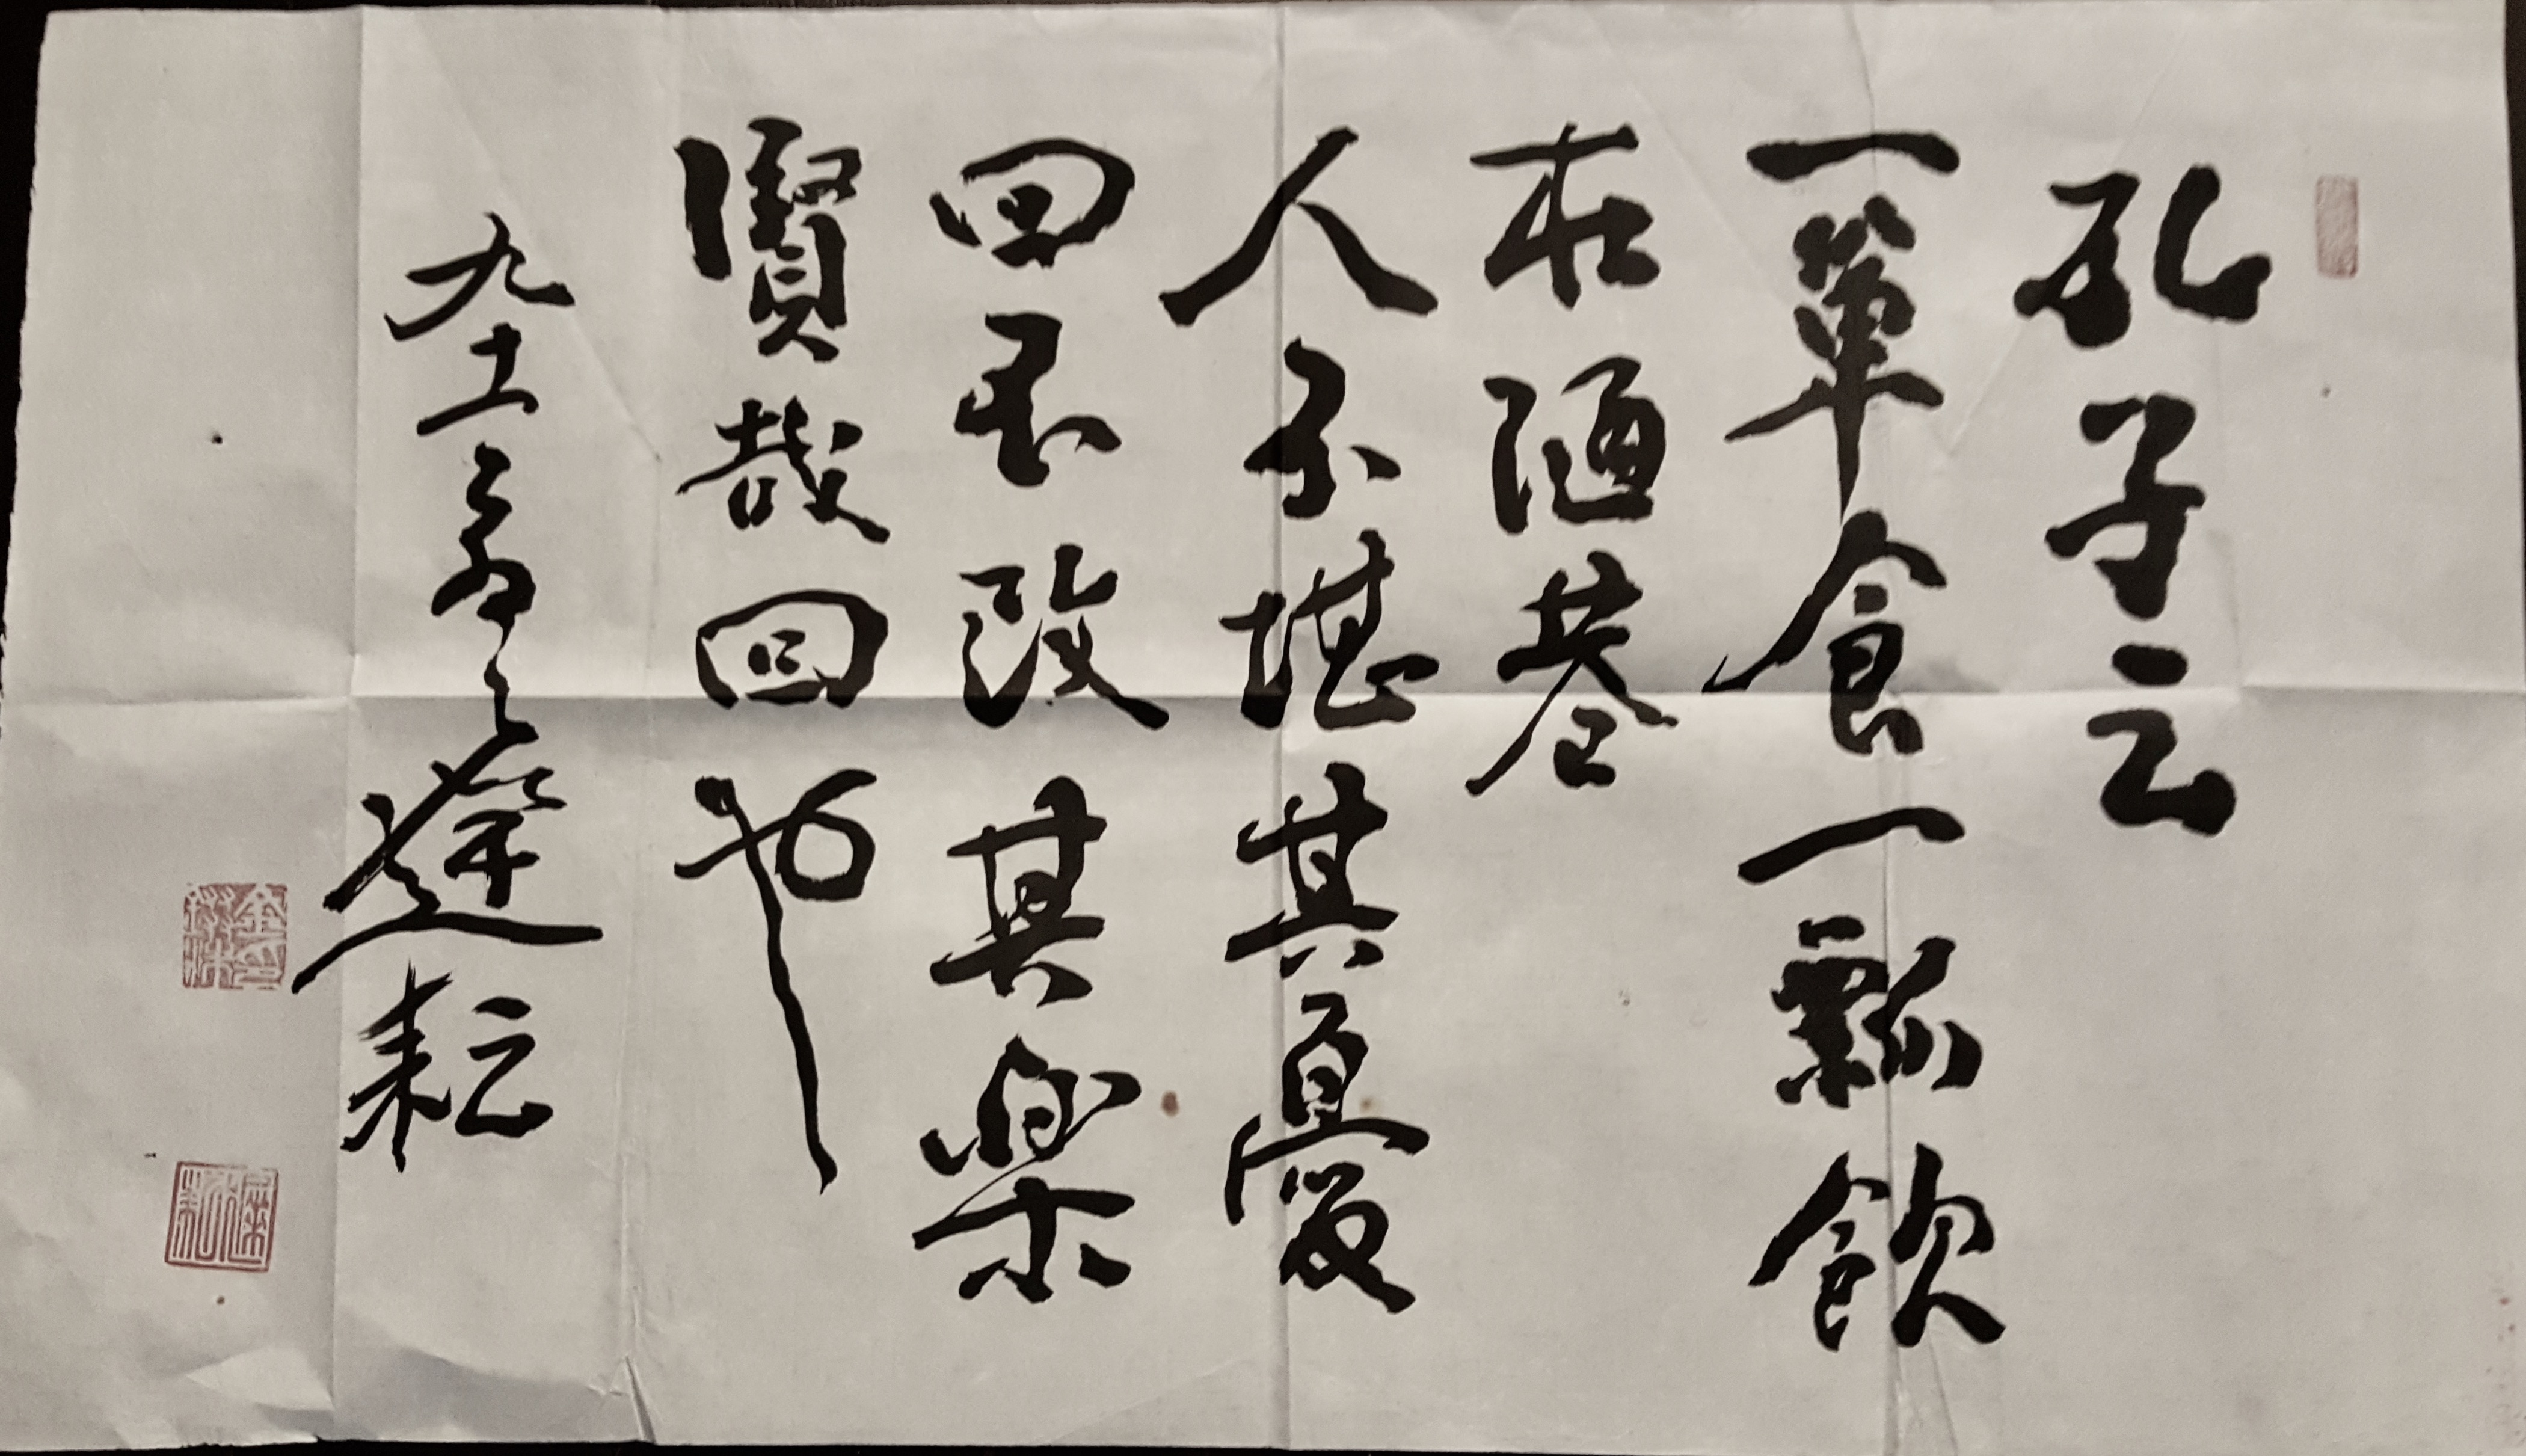 孔子云
一簞食一瓢飲
在陋巷
人不堪其憂
回不改其樂
賢哉回也
九耘